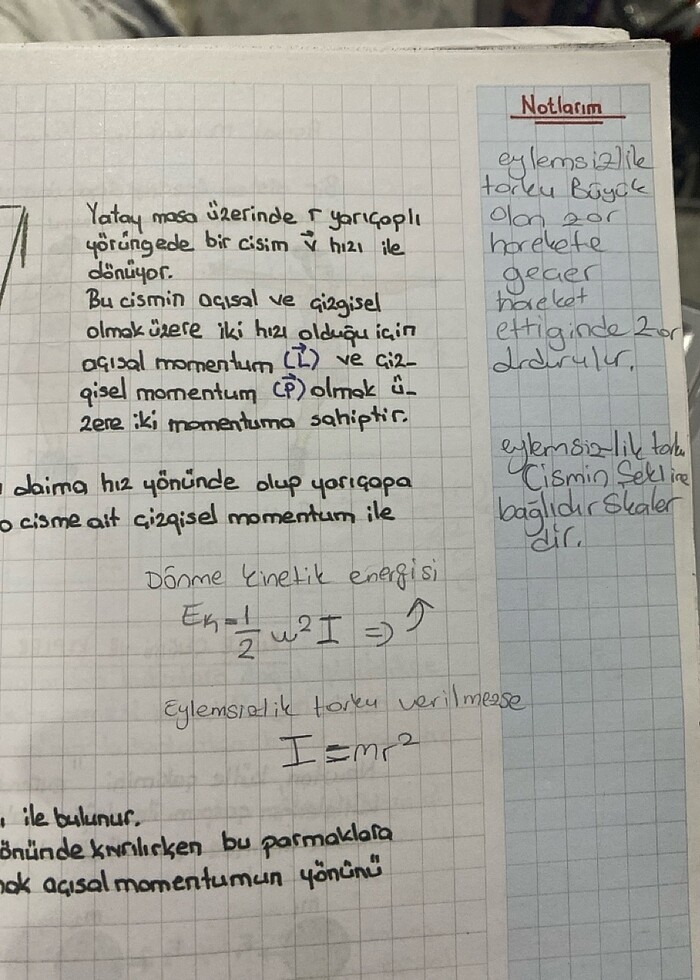 Notlarım
Yatay masa üzerinde r yarıçaplı
yörüngede bir cisim v⃗ hızı ile
dönüyor.
Bu cismin açısal ve çizgisel
olmak üzere iki hızı olduğu için
açısal momentum (L⃗) ve çiz-
gisel momentum (P⃗) olmak ü-
zere iki momentuma sahiptir.
daima hız yönünde olup yarıçapa
o cisme ait çizgisel momentum ile
Dönme kinetik energisi
Ek = 1/2 w² I ⇒ ↑
Eylemsizlik torku verilmezse
I = mr²
ile bulunur.
önünde kıvrılırken bu parmaklara
açısal momentumun yönünü
eylemsizlik
torku Büyük
olan zor
harekete
geçer
hareket
ettiginde zor
durdurulur.
eylemsizlik torku
Cismin Şekline
bağlıdır Skaler
dir.